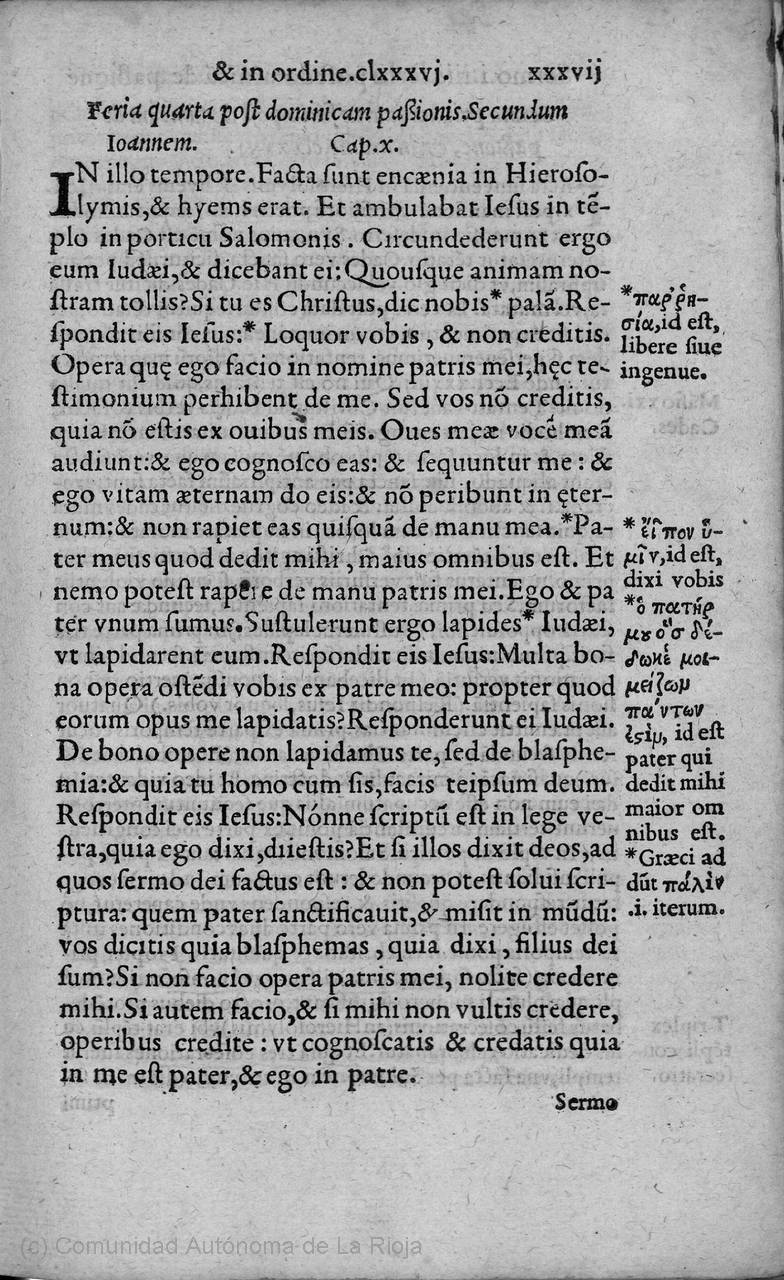 & in ordine.clxxxvj. xxxvij
Feria quarta poſt dominicam paſsionis.Secundum
Ioannem. Cap.x.
IN illo tempore.Facta ſunt encænia in Hieroſo-
lymis,& hyems erat. Et ambulabat Ieſus in tẽ-
plo in porticu Salomonis . Circundederunt ergo
eum Iudæi,& dicebant ei:Quouſque animam no-
ſtram tollis?Si tu es Chriſtus,dic nobis* palã.Re-
ſpondit eis Ieſus:* Loquor vobis , & non creditis.
Opera quę ego facio in nomine patris mei,hęc te-
ſtimonium perhibent de me. Sed vos nõ creditis,
quia nõ eſtis ex ouibus meis. Oues meæ vocẽ meã
audiunt:& ego cognoſco eas: & ſequuntur me : &
ego vitam æternam do eis:& nõ peribunt in ęter-
num:& non rapiet eas quiſquã de manu mea.*Pa-
ter meus quod dedit mihi , maius omnibus eſt. Et
nemo poteſt rapere de manu patris mei.Ego & pa
ter vnum ſumus.Suſtulerunt ergo lapides* Iudæi,
vt lapidarent eum.Reſpondit eis Ieſus:Multa bo-
na opera oſtẽdi vobis ex patre meo: propter quod
eorum opus me lapidatis?Reſponderunt ei Iudæi.
De bono opere non lapidamus te,ſed de blaſphe-
mia:& quia tu homo cum ſis,facis teipſum deum.
Reſpondit eis Ieſus:Nónne ſcriptũ eſt in lege ve-
ſtra,quia ego dixi,dii eſtis?Et ſi illos dixit deos,ad
quos ſermo dei factus eſt : & non poteſt ſolui ſcri-
ptura: quem pater ſanctificauit,& miſit in mũdũ:
vos dicitis quia blaſphemas , quia dixi , filius dei
ſum?Si non facio opera patris mei, nolite credere
mihi.Si autem facio,& ſi mihi non vultis credere,
operibus credite : vt cognoſcatis & credatis quia
in me eſt pater,& ego in patre.
Sermo
*παῤῥη-
σία,id eſt,
libere ſiue
ingenue.
* εἶπον ὑ-
μῖν,id eſt,
dixi vobis
*ὁ πατήρ
μου ὃσ δέ-
δωκέ μοι-
μείζων
πάντων
ἐςὶν, id eſt
pater qui
dedit mihi
maior om
nibus eſt.
*Græci ad
dũt πάλιν
.i. iterum.
(c) Comunidad Autónoma de La Rioja